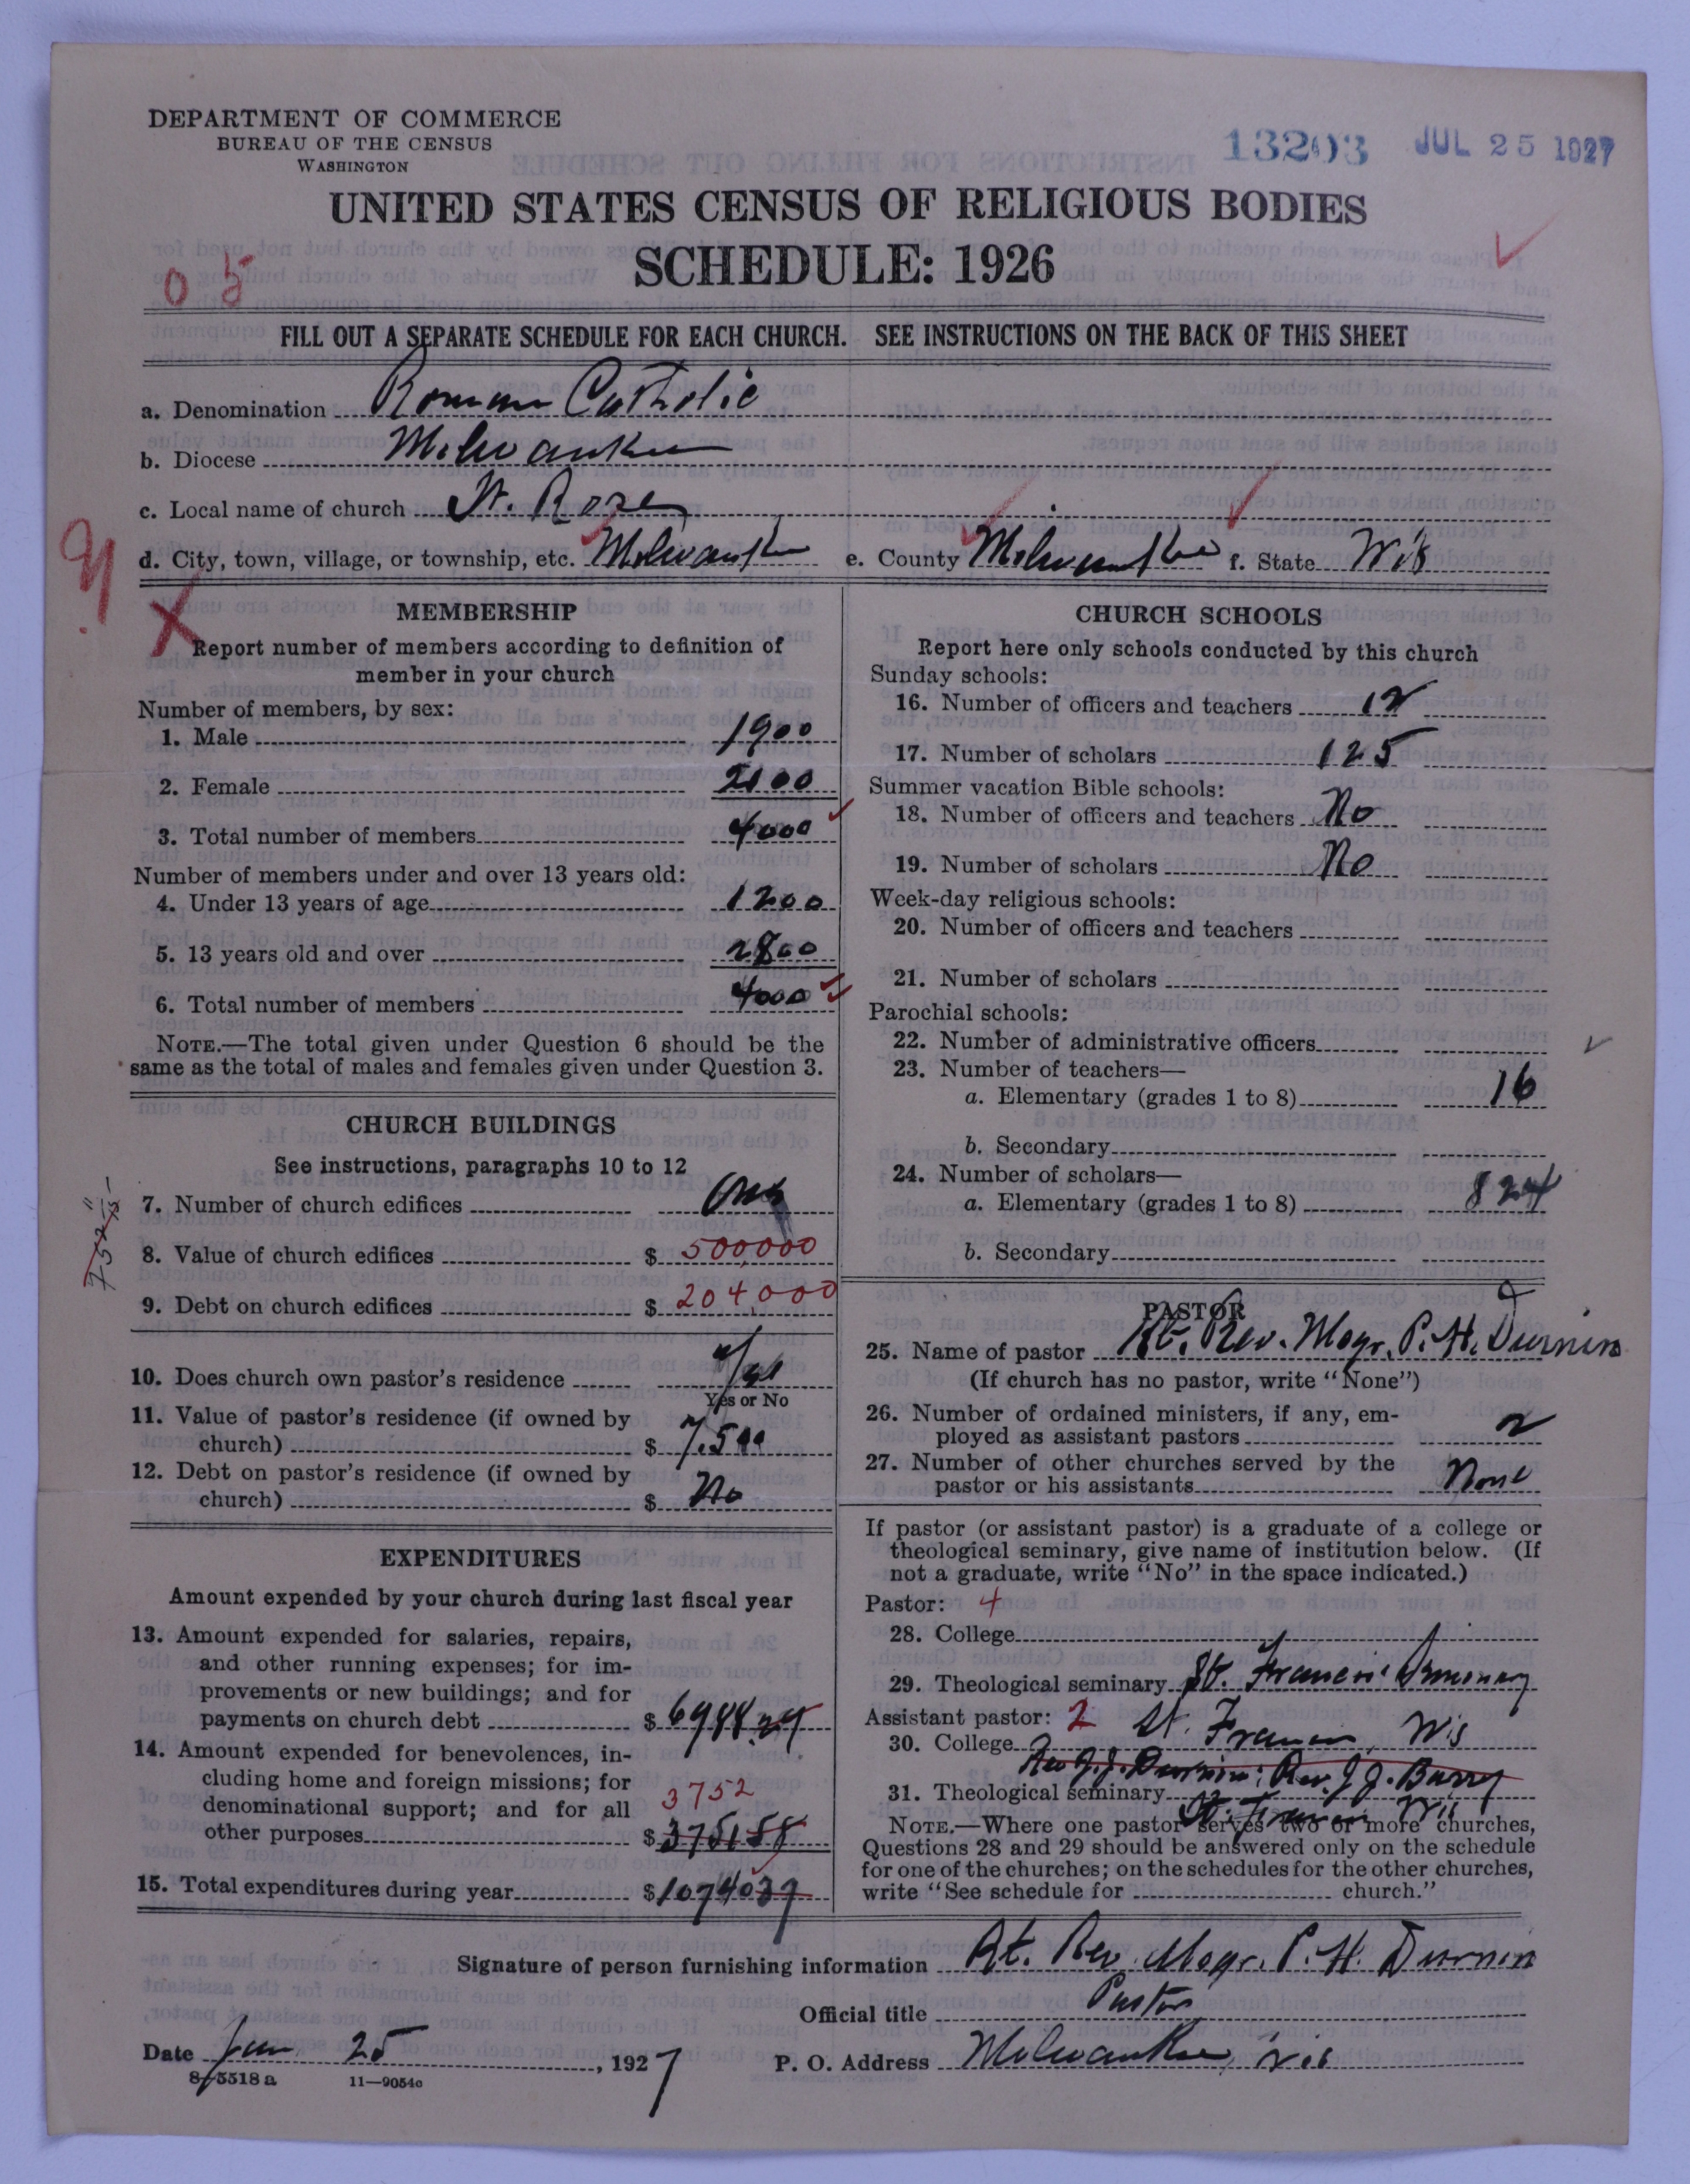 DEPARTMENT OF COMMERCE
BUREAU OF THE CENSUS
WASHINGTON
13203 JUL 25 1927
UNITED STATES CENSUS OF RELIGIOUS BODIES
SCHEDULE: 1926
05
FILL OUT A SEPARATE SCHEDULE FOR EACH CHURCH. SEE INSTRUCTIONS ON THE BACK OF THIS SHEET
a. Denomination Roman Catholic
b. Diocese Milwaukee
c. Local name of church St. Rose
d. City, town, village, or township, etc. Milwaukee e. County Milwaukee f. State Wis
MEMBERSHIP
Report number of members according to definition of
member in your church
Number of members, by sex:
1. Male 1900
2. Female 2100
3. Total number of members 4000
Number of members under and over 13 years old:
4. Under 13 years of age 1200
5. 13 years old and over 2800
6. Total number of members 4000
NOTE.—The total given under Question 6 should be the
same as the total of males and females given under Question 3.
CHURCH BUILDINGS
See instructions, paragraphs 10 to 12
7. Number of church edifices One
8. Value of church edifices $ 500,000
9. Debt on church edifices $ 204,000
10. Does church own pastor's residence Yes
Yes or No
11. Value of pastor's residence (if owned by
church) $ 7.500
12. Debt on pastor's residence (if owned by
church) $ No
EXPENDITURES
Amount expended by your church during last fiscal year
13. Amount expended for salaries, repairs,
and other running expenses; for im-
provements or new buildings; and for
payments on church debt $ 6988.29
14. Amount expended for benevolences, in-
cluding home and foreign missions; for
denominational support; and for all
3752
other purposes $ 375158
15. Total expenditures during year $ 1074037
CHURCH SCHOOLS
Report here only schools conducted by this church
Sunday schools:
16. Number of officers and teachers 12
17. Number of scholars 125
Summer vacation Bible schools:
18. Number of officers and teachers No
19. Number of scholars No
Week-day religious schools:
20. Number of officers and teachers
21. Number of scholars
Parochial schools:
22. Number of administrative officers
23. Number of teachers—
a. Elementary (grades 1 to 8) 16
b. Secondary
24. Number of scholars—
a. Elementary (grades 1 to 8) 824
b. Secondary
PASTOR
25. Name of pastor Rt. Rev. Msgr. P. H. Durnin
(If church has no pastor, write "None")
26. Number of ordained ministers, if any, em-
ployed as assistant pastors 2
27. Number of other churches served by the
pastor or his assistants None
If pastor (or assistant pastor) is a graduate of a college or
theological seminary, give name of institution below. (If
not a graduate, write "No" in the space indicated.)
Pastor: 4
28. College
29. Theological seminary St. Francis Seminary
Assistant pastor: 2 St. Francis, Wis
30. College Rev J. J. Durnin; Rev. J. J. Barry
31. Theological seminary St. Francis Wis
NOTE.—Where one pastor serves two or more churches,
Questions 28 and 29 should be answered only on the schedule
for one of the churches; on the schedules for the other churches,
write "See schedule for church."
Signature of person furnishing information Rt. Rev. Msgr. P. H. Durnin
Official title Pastor
Date Jun 25, 1927 P. O. Address Milwaukee, Wis
8-5518a 11—9054c